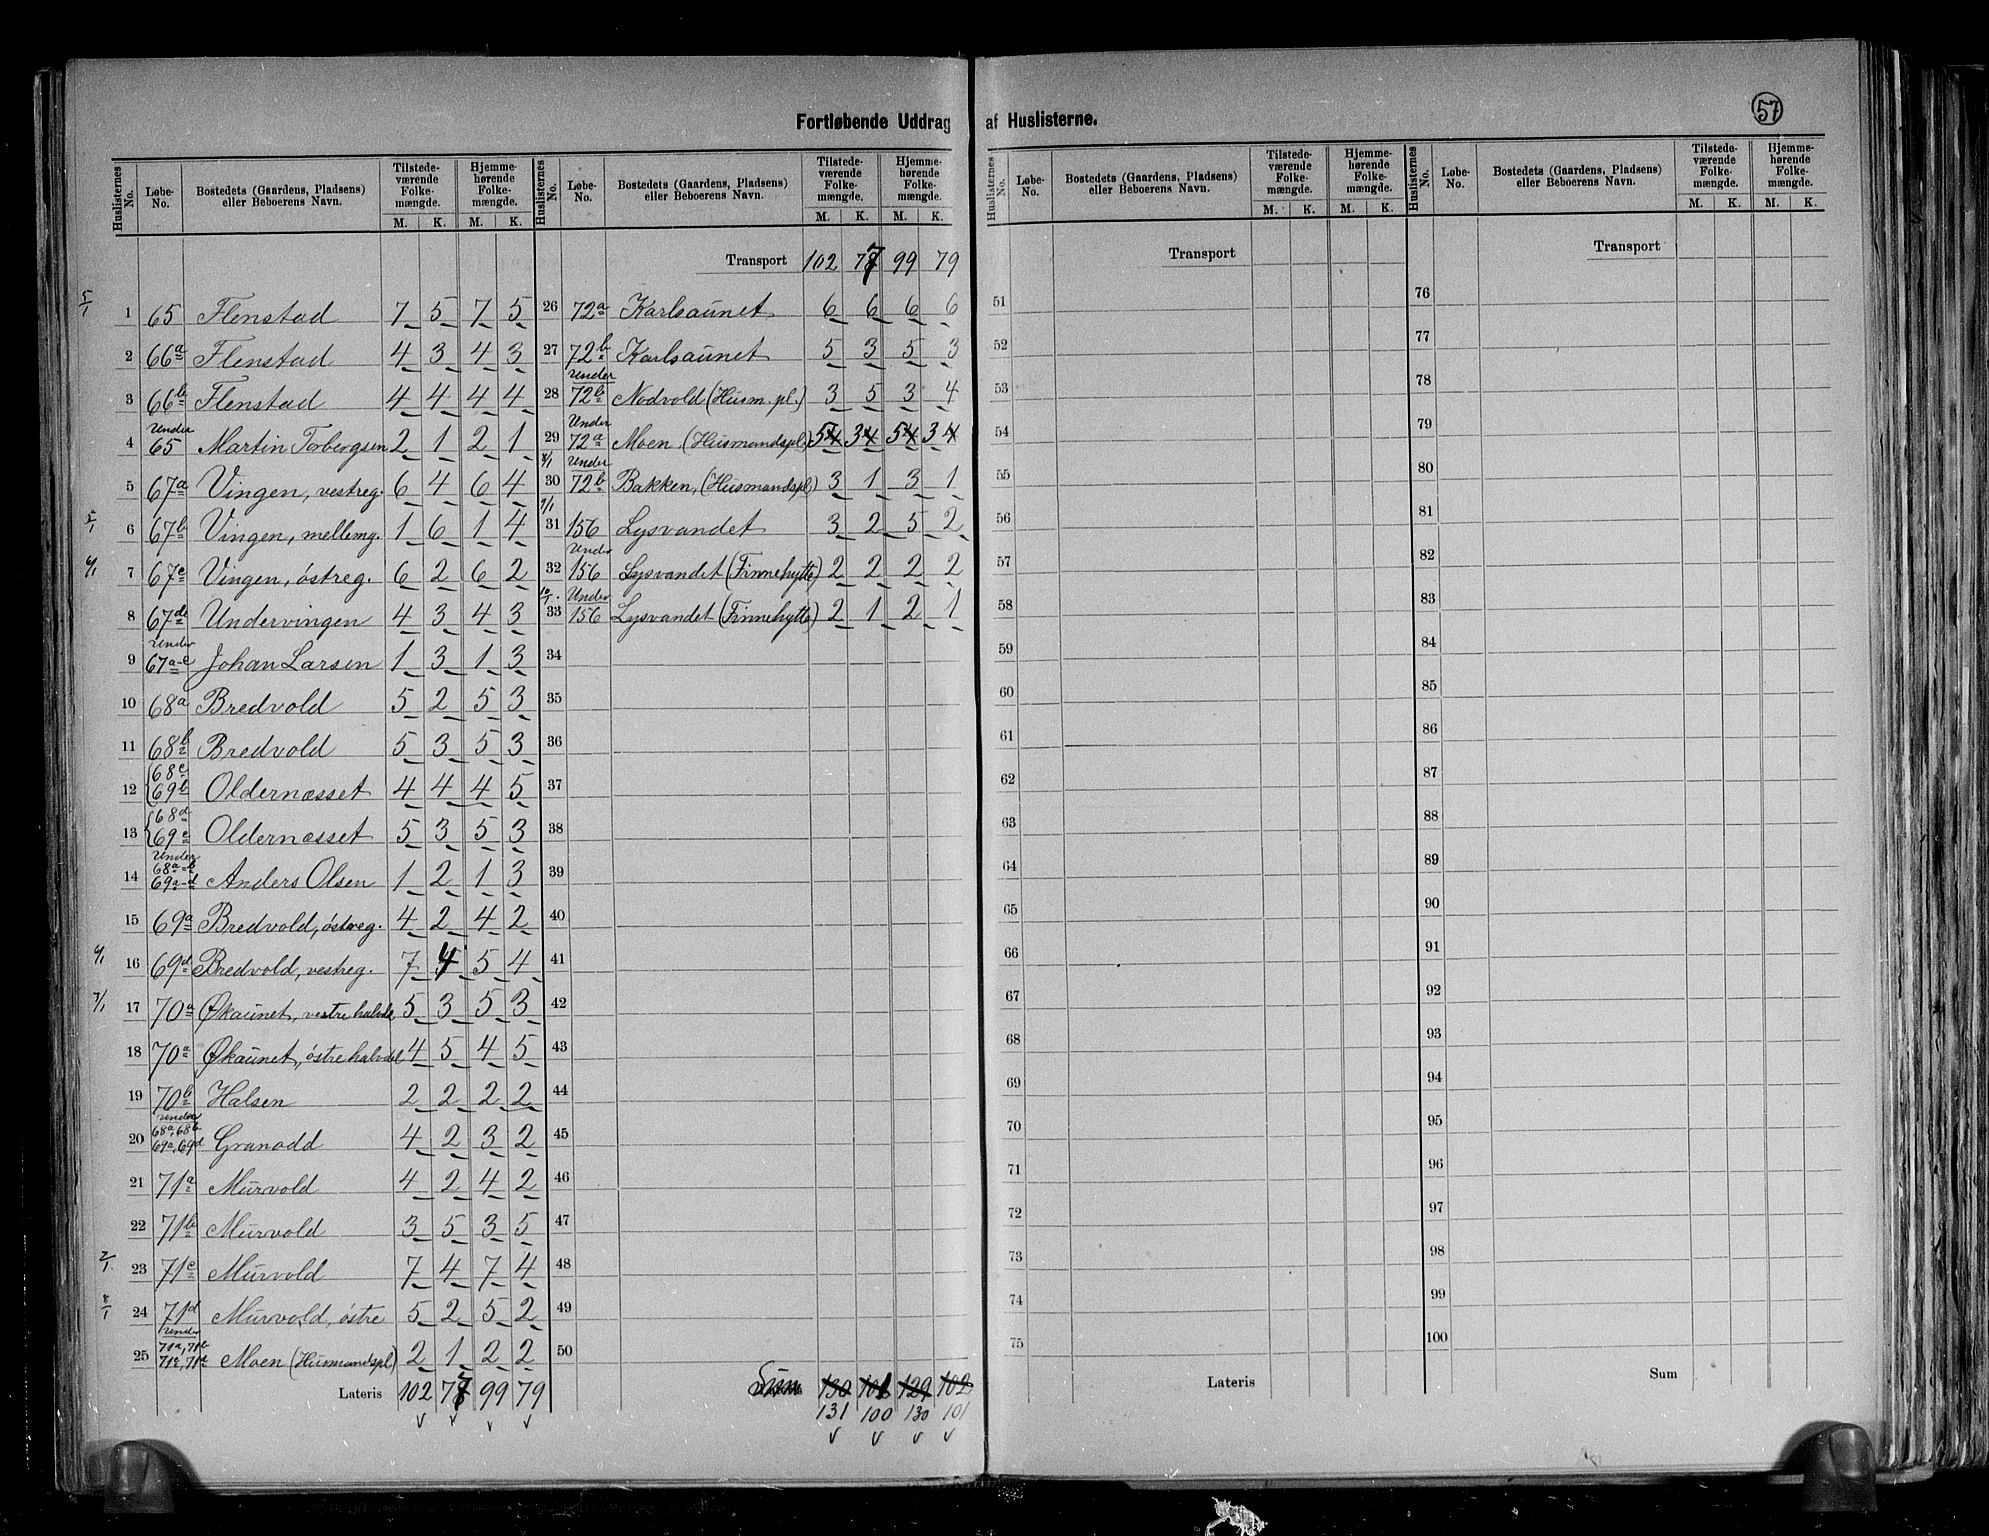 Fortløbende Uddrag af Huslisterne.
57
Huslisternes No. | Løbe-No. | Bostedets (Gaardens, Pladsens) eller Beboerens Navn. | Tilstedeværende Folkemængde. M. K. | Hjemmehørende Folkemængde. M. K.
5/1 1 65 Flenstad 7 5 7 5
2 66a Flenstad 4 3 4 3
3 66b Flenstad 4 4 4 4
4 Under 65 Martin Torbergsen 2 1 2 1
5 67a Vingen, vestreg. 6 4 6 4
5/1 6 67b Vingen, mellemg. 1 6 1 4
6/1 7 67c Vingen, östreg. 6 2 6 2
8 67de Undervingen 4 3 4 3
9 Under 67a-e Johan Larsen 1 3 1 3
10 68a Bredvold 5 2 5 3
11 68b Bredvold 5 3 5 3
12 68c 69b Oldernæsset 4 4 4 5
13 68d 69c Oldernæsset 5 3 5 3
14 Under 68a-b 69a-d Anders Olsen 1 2 1 3
15 69a Bredvold, östreg. 4 2 4 2
6/1 16 69d Bredvold, vestreg. 7 4 5 4
7/1 17 70a Økaunet, vestre halvdel 5 3 5 3
18 70a Økaunet, östre halvdel 4 5 4 5
19 70b Halsen 2 2 2 2
20 Under 68a, 68b 69a, 69d Granodd 4 2 3 2
21 71a Murvold 4 2 4 2
22 71b Murvold 3 5 3 5
2/1 23 71c Murvold 7 4 7 4
8/1 24 71d Murvold, östre 5 2 5 2
25 Under 71a, 71b 71c, 71d Moen (Husmandspl.) 2 1 2 2
Lateris 102 77 99 79
Huslisternes No. | Løbe-No. | Bostedets (Gaardens, Pladsens) eller Beboerens Navn. | Tilstedeværende Folkemængde. M. K. | Hjemmehørende Folkemængde. M. K.
Transport 102 77 99 79
26 72a Karlsaunet 6 6 6 6
27 72b Karlsaunet 5 3 5 3
28 Under 72b Nodvold (Husm.pl.) 3 5 3 4
29 Under 72a Moen (Husmandspl.) 5 4 3 4 5 4 3 4
8/1 30 Under 72b Bakken, (Husmandspl.) 3 1 3 1
9/1 31 156 Lysvandet 3 2 5 2
32 Under 156 Lysvandet (Finnehytte) 2 2 2 2
10/1 33 Under 156 Lysvandet (Finnehytte) 2 1 2 1
34
35
36
37
38
39
40
41
42
43
44
45
46
47
48
49
50
Sum 130 101 129 102
131 100 130 101
Huslisternes No. | Løbe-No. | Bostedets (Gaardens, Pladsens) eller Beboerens Navn. | Tilstedeværende Folkemængde. M. K. | Hjemmehørende Folkemængde. M. K.
Transport
51
52
53
54
55
56
57
58
59
60
61
62
63
64
65
66
67
68
69
70
71
72
73
74
75
Lateris
Huslisternes No. | Løbe-No. | Bostedets (Gaardens, Pladsens) eller Beboerens Navn. | Tilstedeværende Folkemængde. M. K. | Hjemmehørende Folkemængde. M. K.
Transport
76
77
78
79
80
81
82
83
84
85
86
87
88
89
90
91
92
93
94
95
96
97
98
99
100
Sum